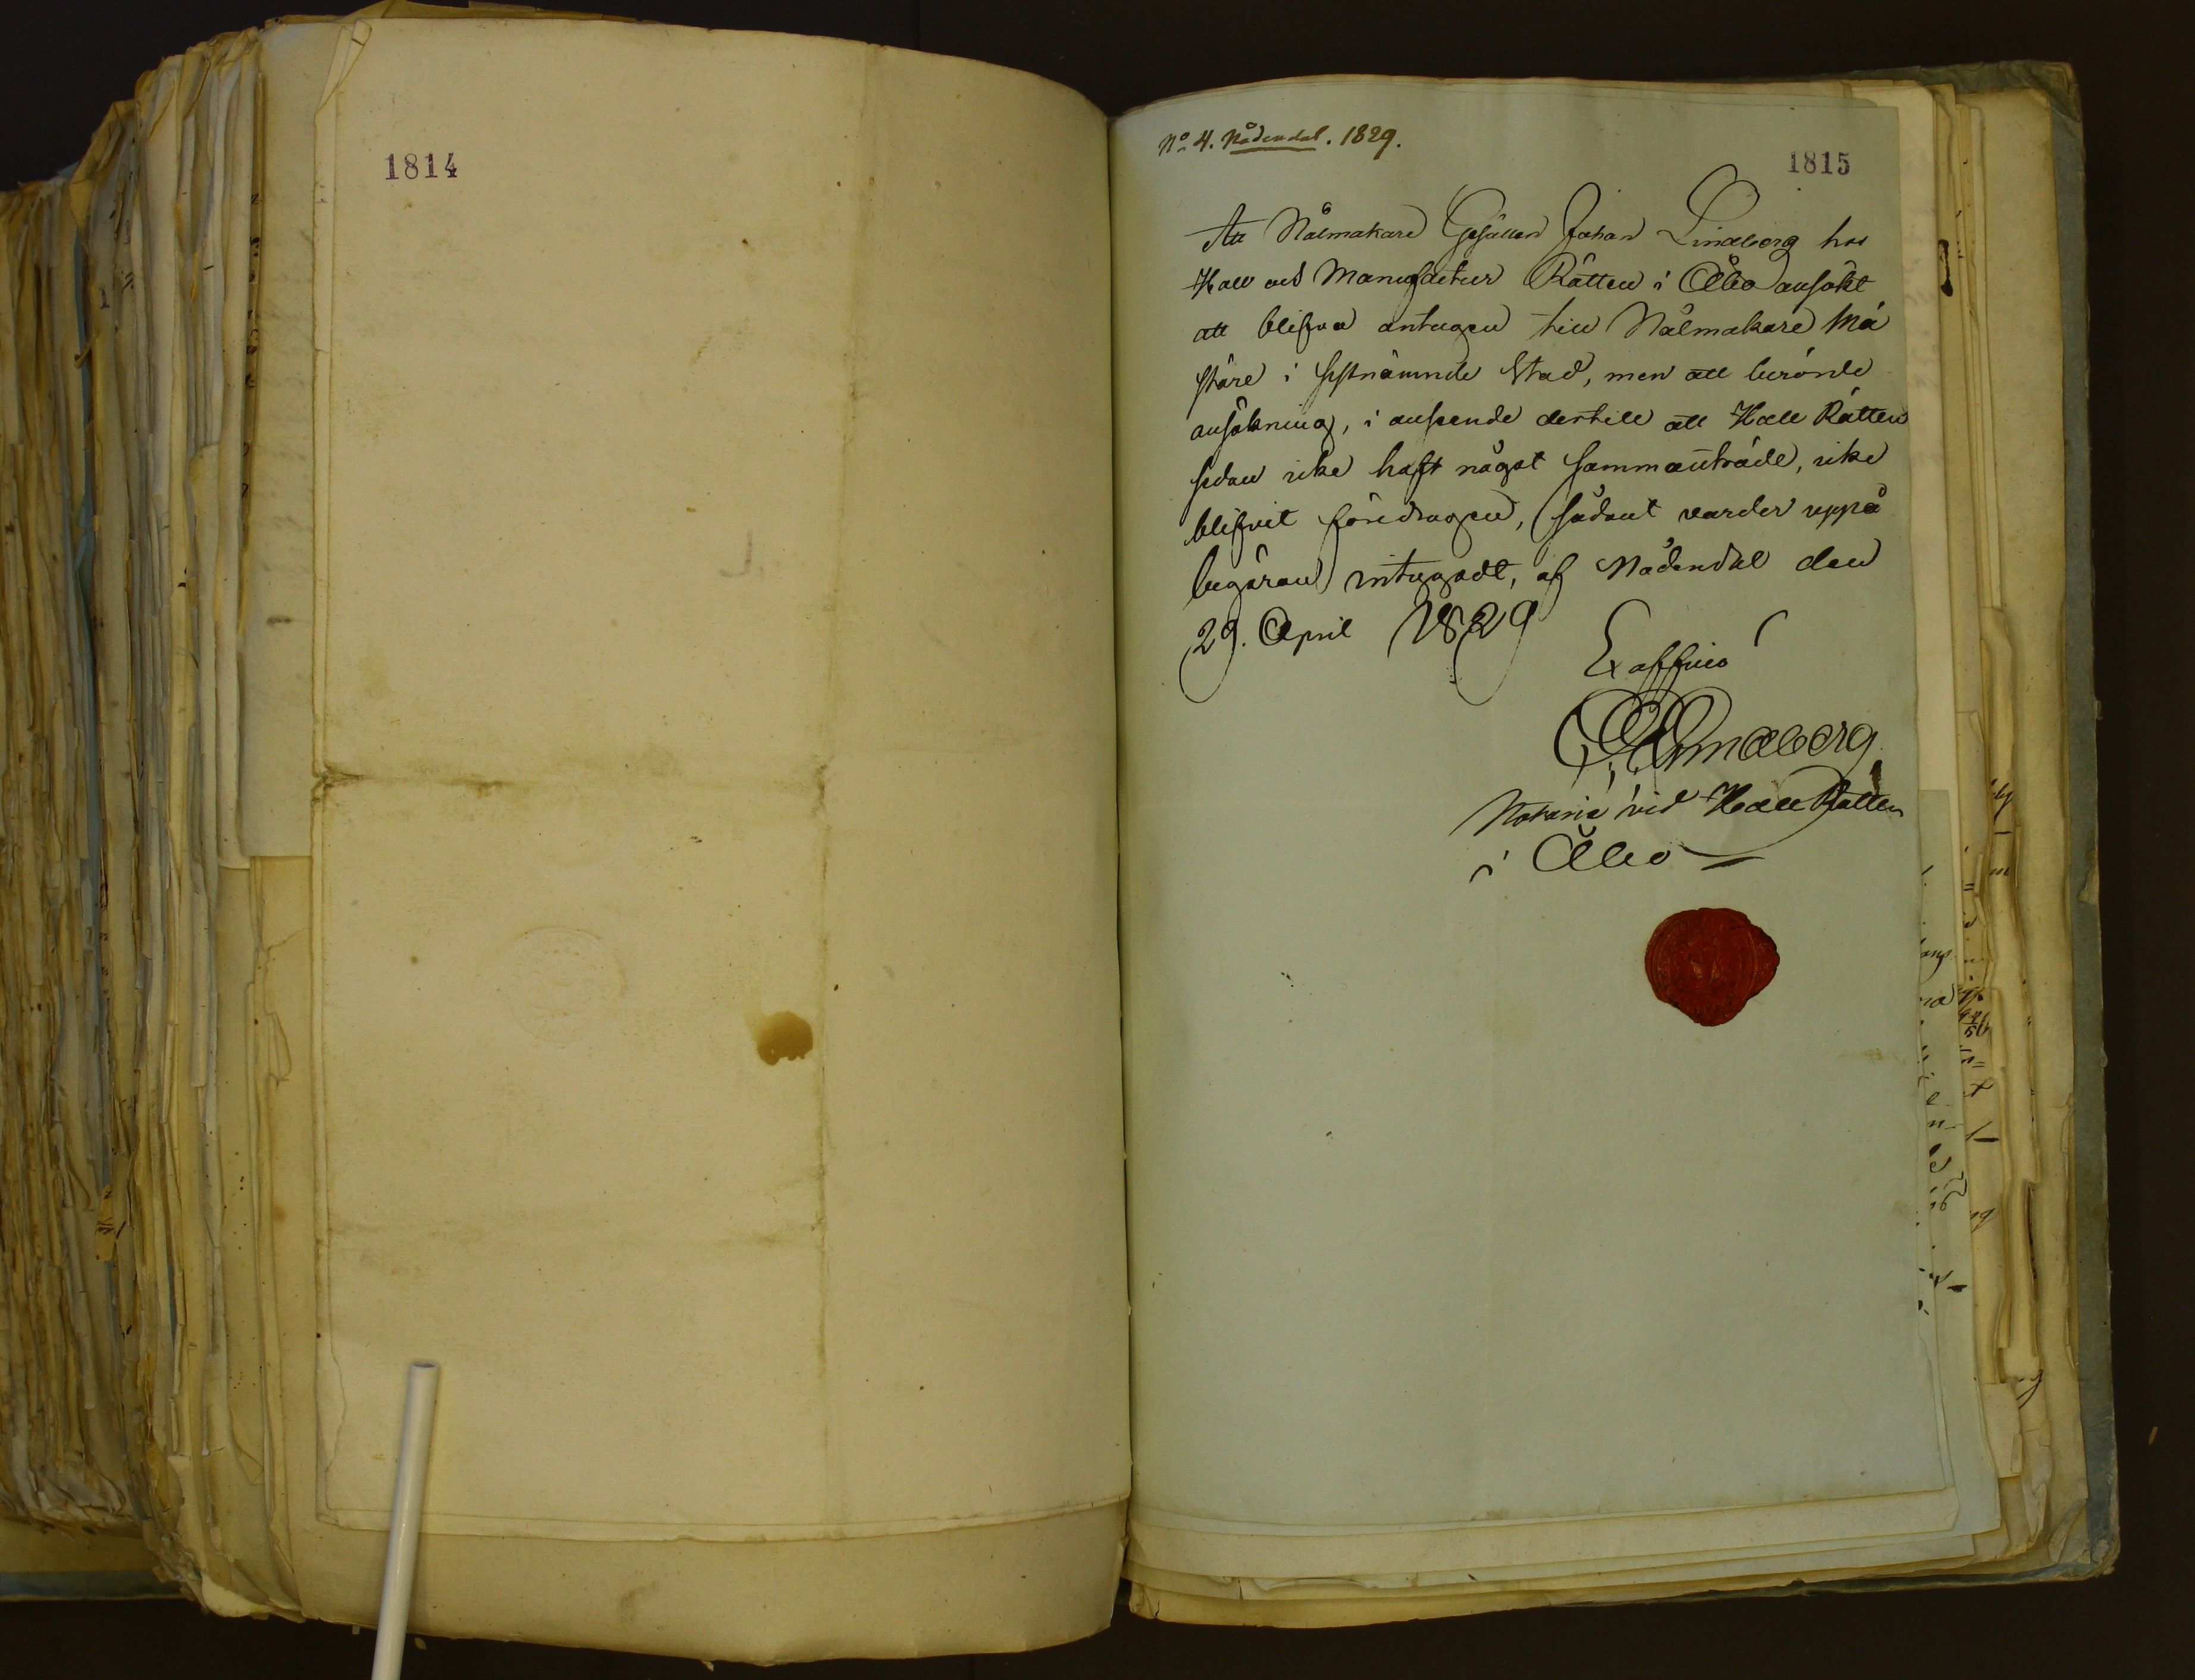 1814
No 4. Nådendal. 1829.
1815
Att Nålmakare Gesällen Johan Lindberg hos
Hall och Manufactur Rätten i Åbo ansökt
att blifva antagen till Nålmakare Mä
stare i sistnämnde Stad, men att berörde
ansökning, i anseende dertill att Hall Rätten
sedan icke haft något sammanträde, icke
blifvit föredragen, sådant varder uppå
begäran intygadt, af Nådendal den
29. April 1829
Ex officio
Lindeberg
Notarie vid Hall Rätten
i Åbo